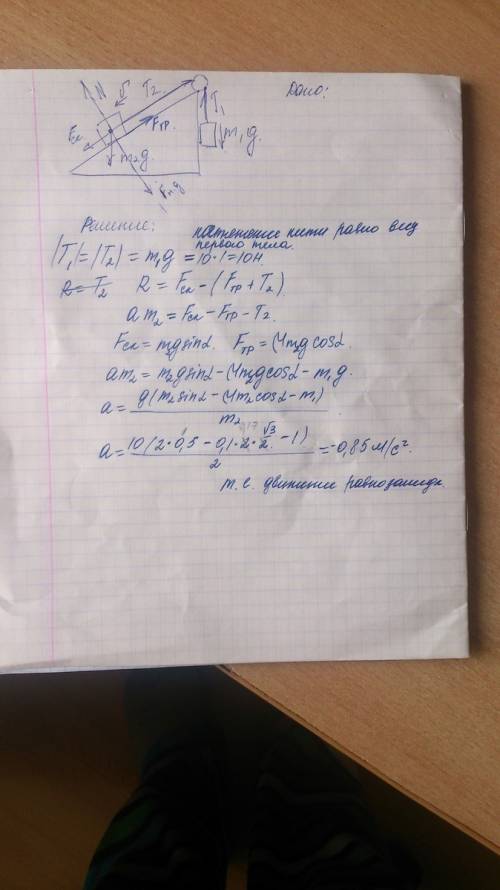 Дано:
N υ T₂
Fск Fтр. T₁
m₂g m₁g.
Решение: натяжение нити равно весу
первого тела.
|T₁|=|T₂| = m₁g = 10·1=10Н.
R=T₂ R = Fск – (Fтр + T₂)
am₂ = Fск – Fтр – T₂.
Fск = m₂g sinα. Fтр = μm₂g cosα.
am₂ = m₂g sinα – μm₂g cosα – m₁g.
a = g(m₂ sinα – μm₂ cosα – m₁) / m₂
a = 10(2·0,5 – 0,1·2·√3/2 – 1) / 2 = -0,85 м/с².
т.е. движение равнозамедл.